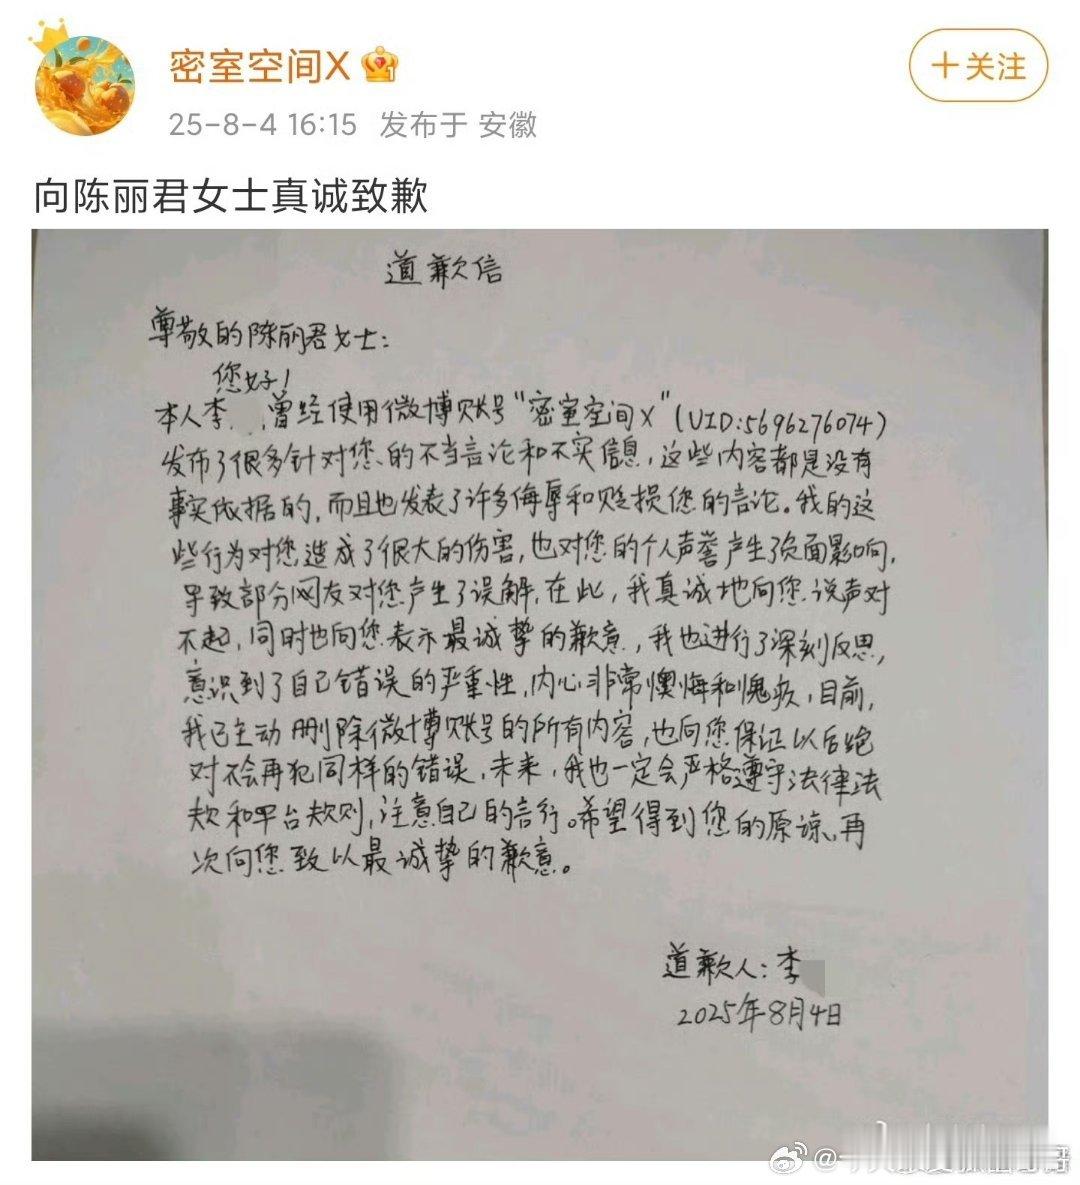 密室空间X
+关注
25-8-4 16:15 发布于 安徽
向陈丽君女士真诚致歉
道歉信
尊敬的陈丽君女士:
您好!
本人李 ,曾经使用微博账号“密室空间X”(UID:5696276074)
发布了很多针对您的不当言论和不实信息,这些内容都是没有
事实依据的,而且也发表了许多侮辱和贬损您的言论。我的这
些行为对您造成了很大的伤害,也对您的个人声誉产生了负面影响,
导致部分网友对您产生了误解,在此,我真诚地向您说声对
不起,同时也向您表示最诚挚的歉意,我也进行了深刻反思,
意识到了自己错误的严重性,内心非常懊悔和愧疚,目前,
我已主动删除微博账号的所有内容,也向您保证以后绝
对不会再犯同样的错误,未来,我也一定会严格遵守法律法
规和平台规则,注意自己的言行。希望得到您的原谅,再
次向您致以最诚挚的歉意。
道歉人:李
2025年8月4日